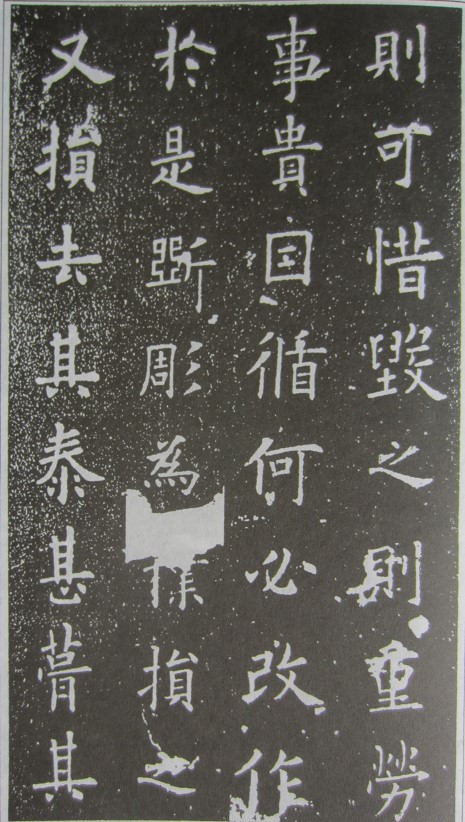 則可惜毀之則重勞
事貴因循何必改作
於是斲彫為樸損之
又損去其泰甚葺其